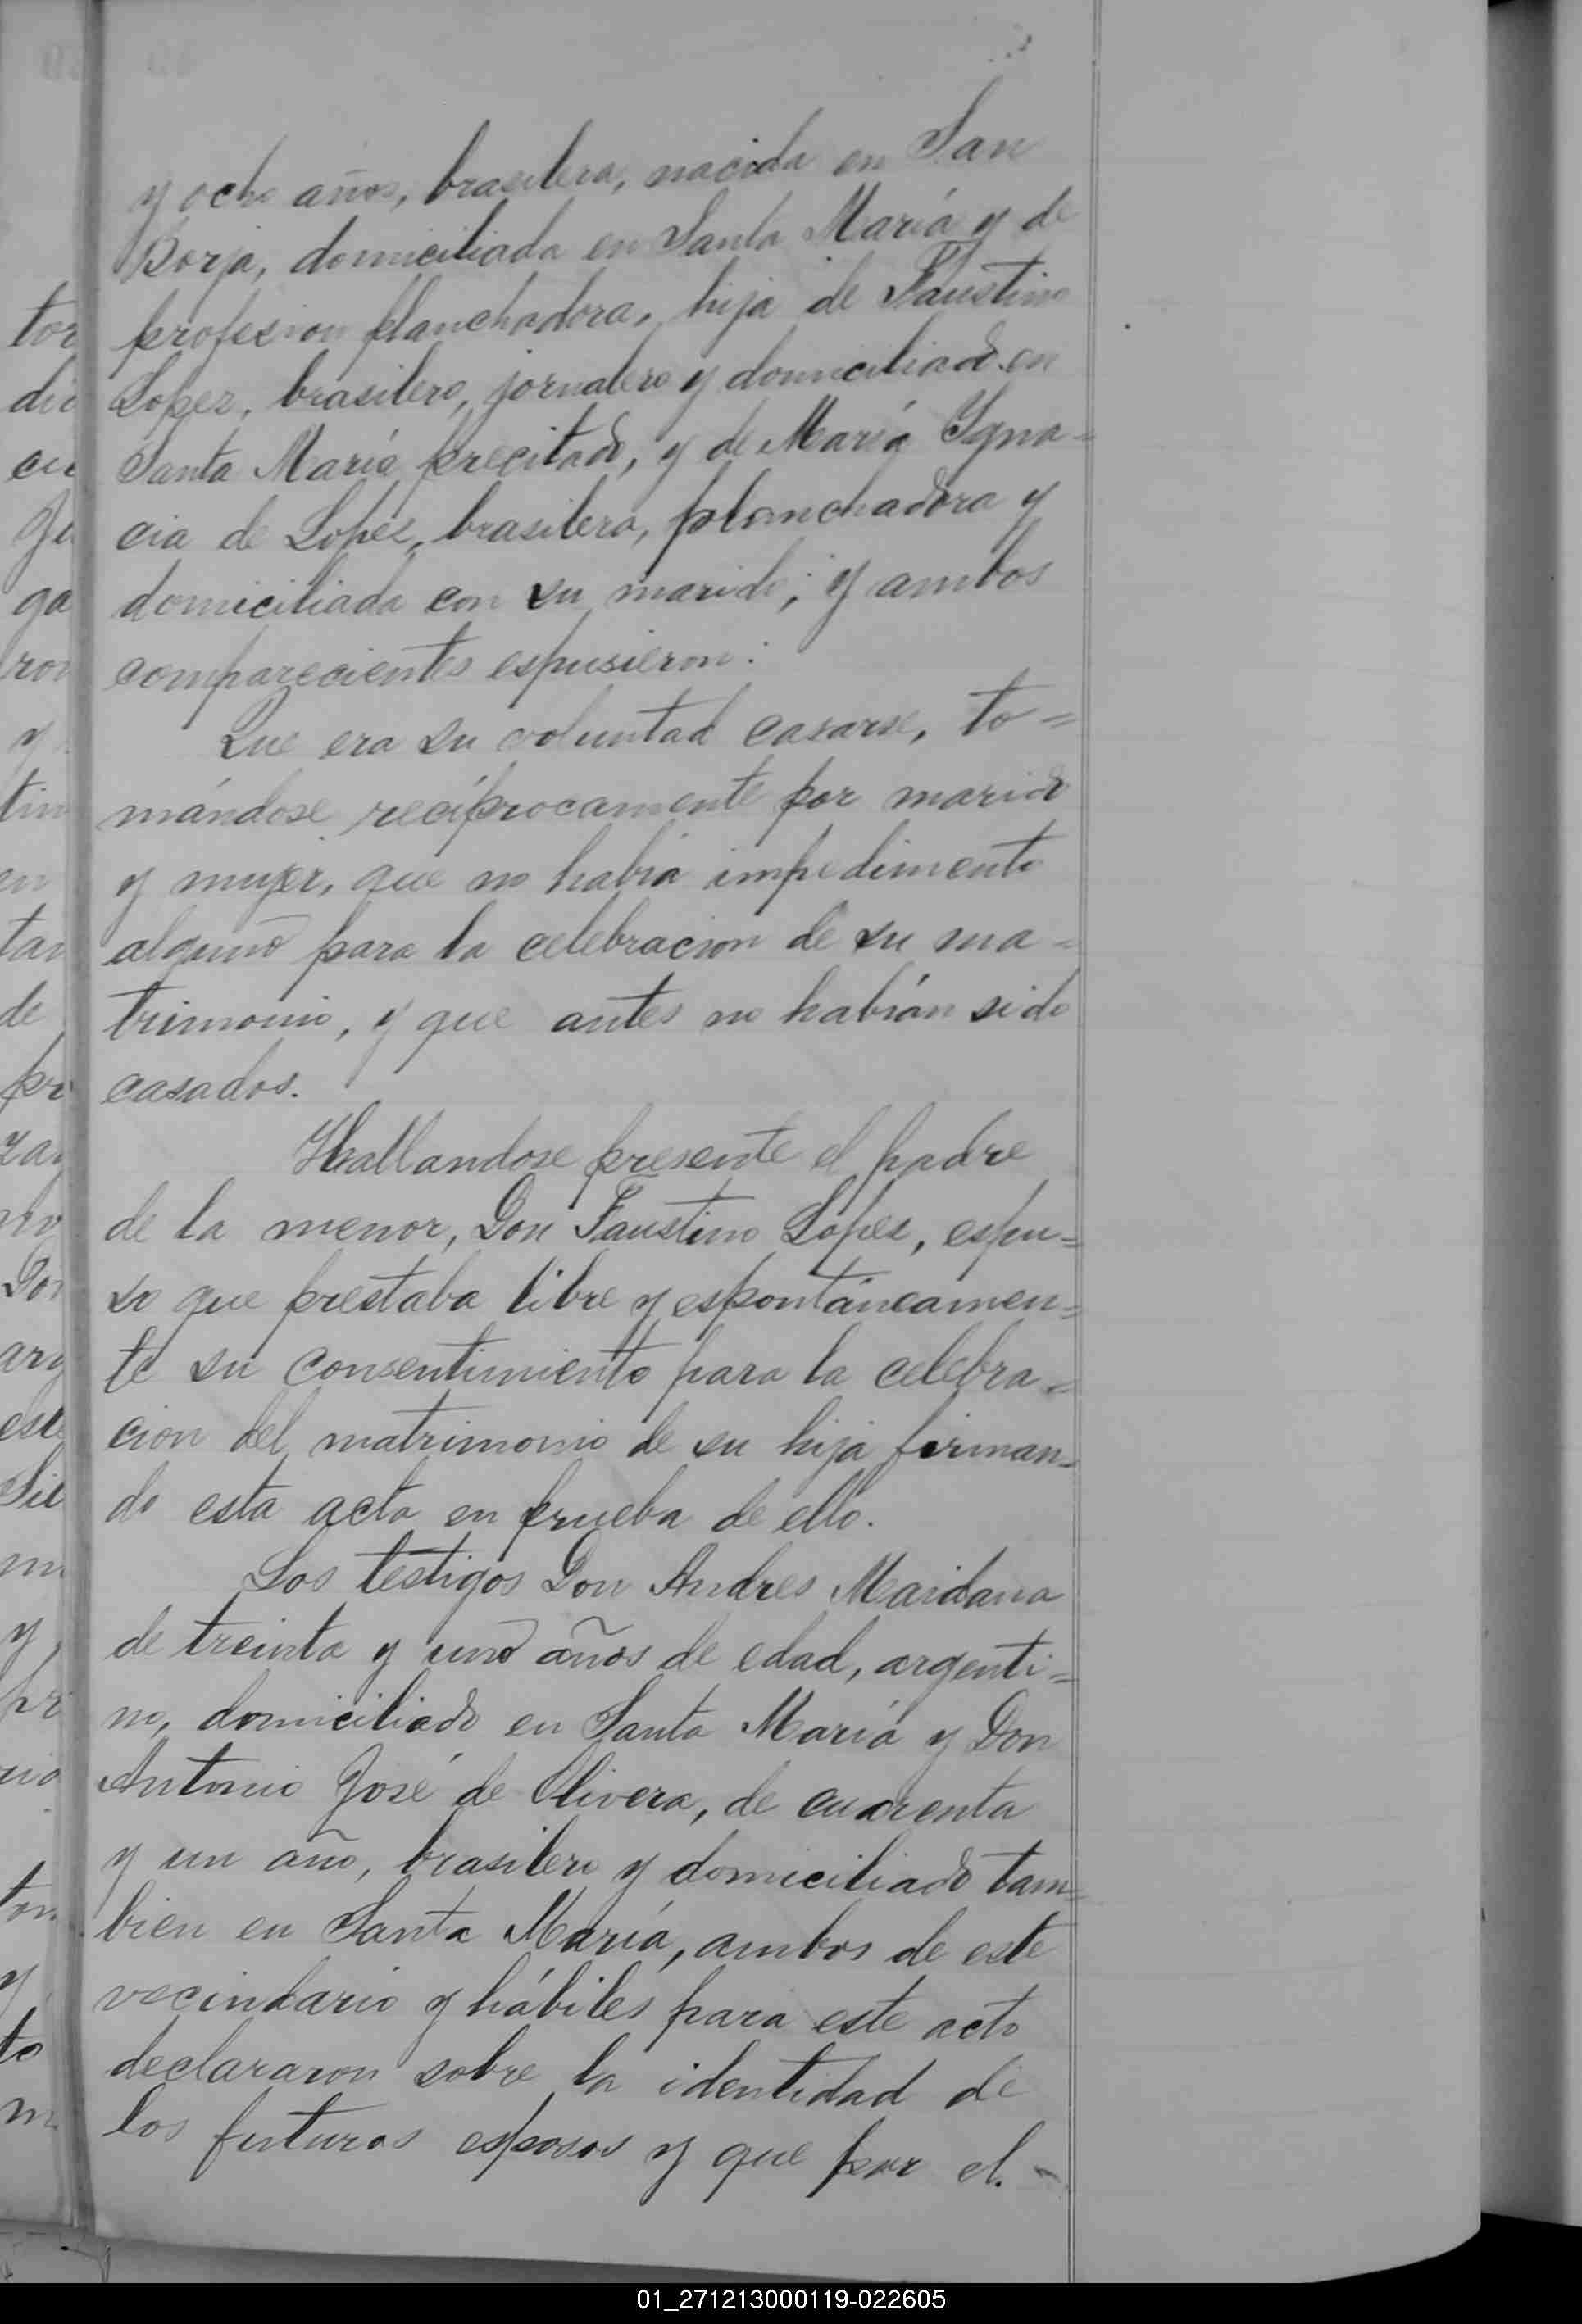 y ocho años, brasilera, nacida en San
Borja, domiciliada en Santa María y de
profesion planchadora, hija de Faustino
Lopez, brasilero, jornalero y domiciliado en
Santa María precitado, y de María Ygna=
cia de Lopez, brasilera, planchadora y
domiciliada con su marido; y ambos
comparecientes espusieron:
Que era su voluntad casarse, to=
mándose recíprocamente por marido
y mujer, que no había impedimento
alguno para la celebracion de su ma=
trimonio, y que antes no habían sido
casados.
Hallandose presente el padre
de la menor, Don Faustino Lopez, espu=
so que prestaba libre y espontáneamen=
te su consentimiento para la celebra=
cion del matrimonio de su hija firman=
do esta acta en prueba de ello.
Los testigos Don Andres Maidana
de treinta y uno años de edad, argenti=
no, domiciliado en Santa María y Don
Antonio José de Olivera, de cuarenta
y un año, brasilero y domiciliado tam=
bien en Santa María, ambos de este
vecindario y hábiles para este acto
declararon sobre la identidad de
los futuros esposos y que por el.-
01_271213000119-022605